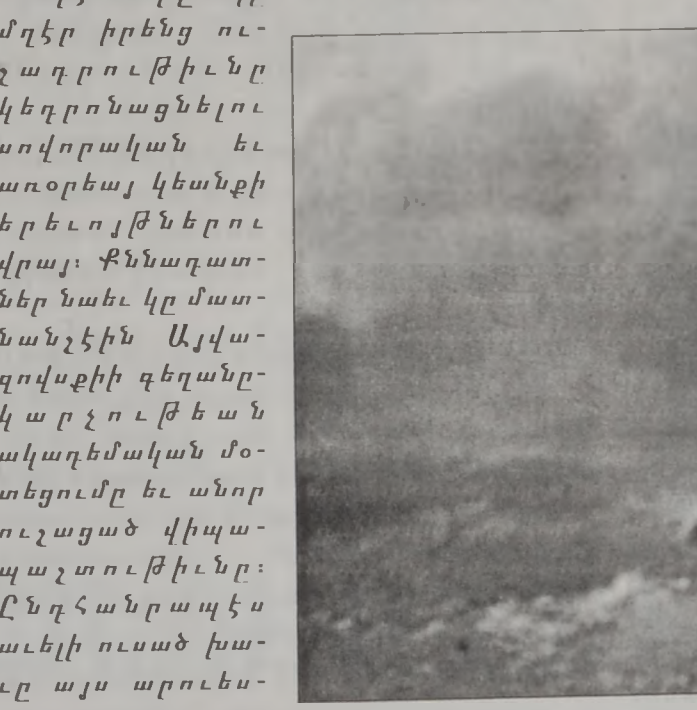 մղէր իրենց ու-
շադրութիւնը
կեդրոնացնելու
սովորական եւ
առօրեայ կեանքի
երեւոյթներու
վրայ։ Քննադատ-
ներ նաեւ կը մատ-
նանշէին Այվա-
զովսքիի գեղանը-
կարչութեան
ակադեմական մօ-
տեցումը եւ անոր
ուշացած վիպա-
պաշտութիւնը։
Ընդհանրապէս
աւելի ուսած խա-
ւը այս արուես-